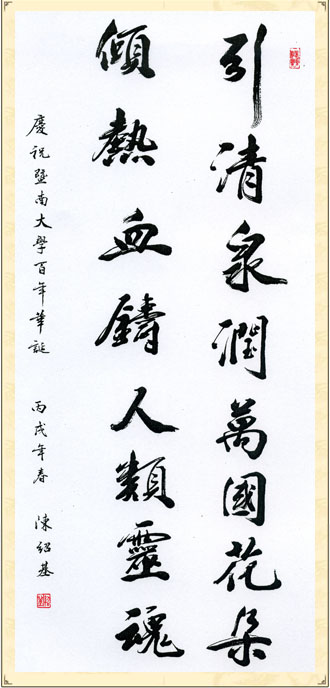 引清泉潤萬國花朵
傾熱血鑄人類靈魂
慶祝暨南大學百年華誕
丙戌年春 陳紹基